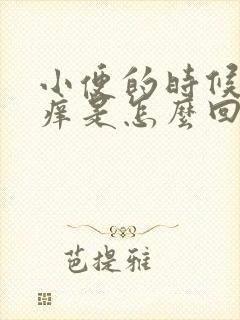 小便的時候
痒是怎麼回
芭提雅